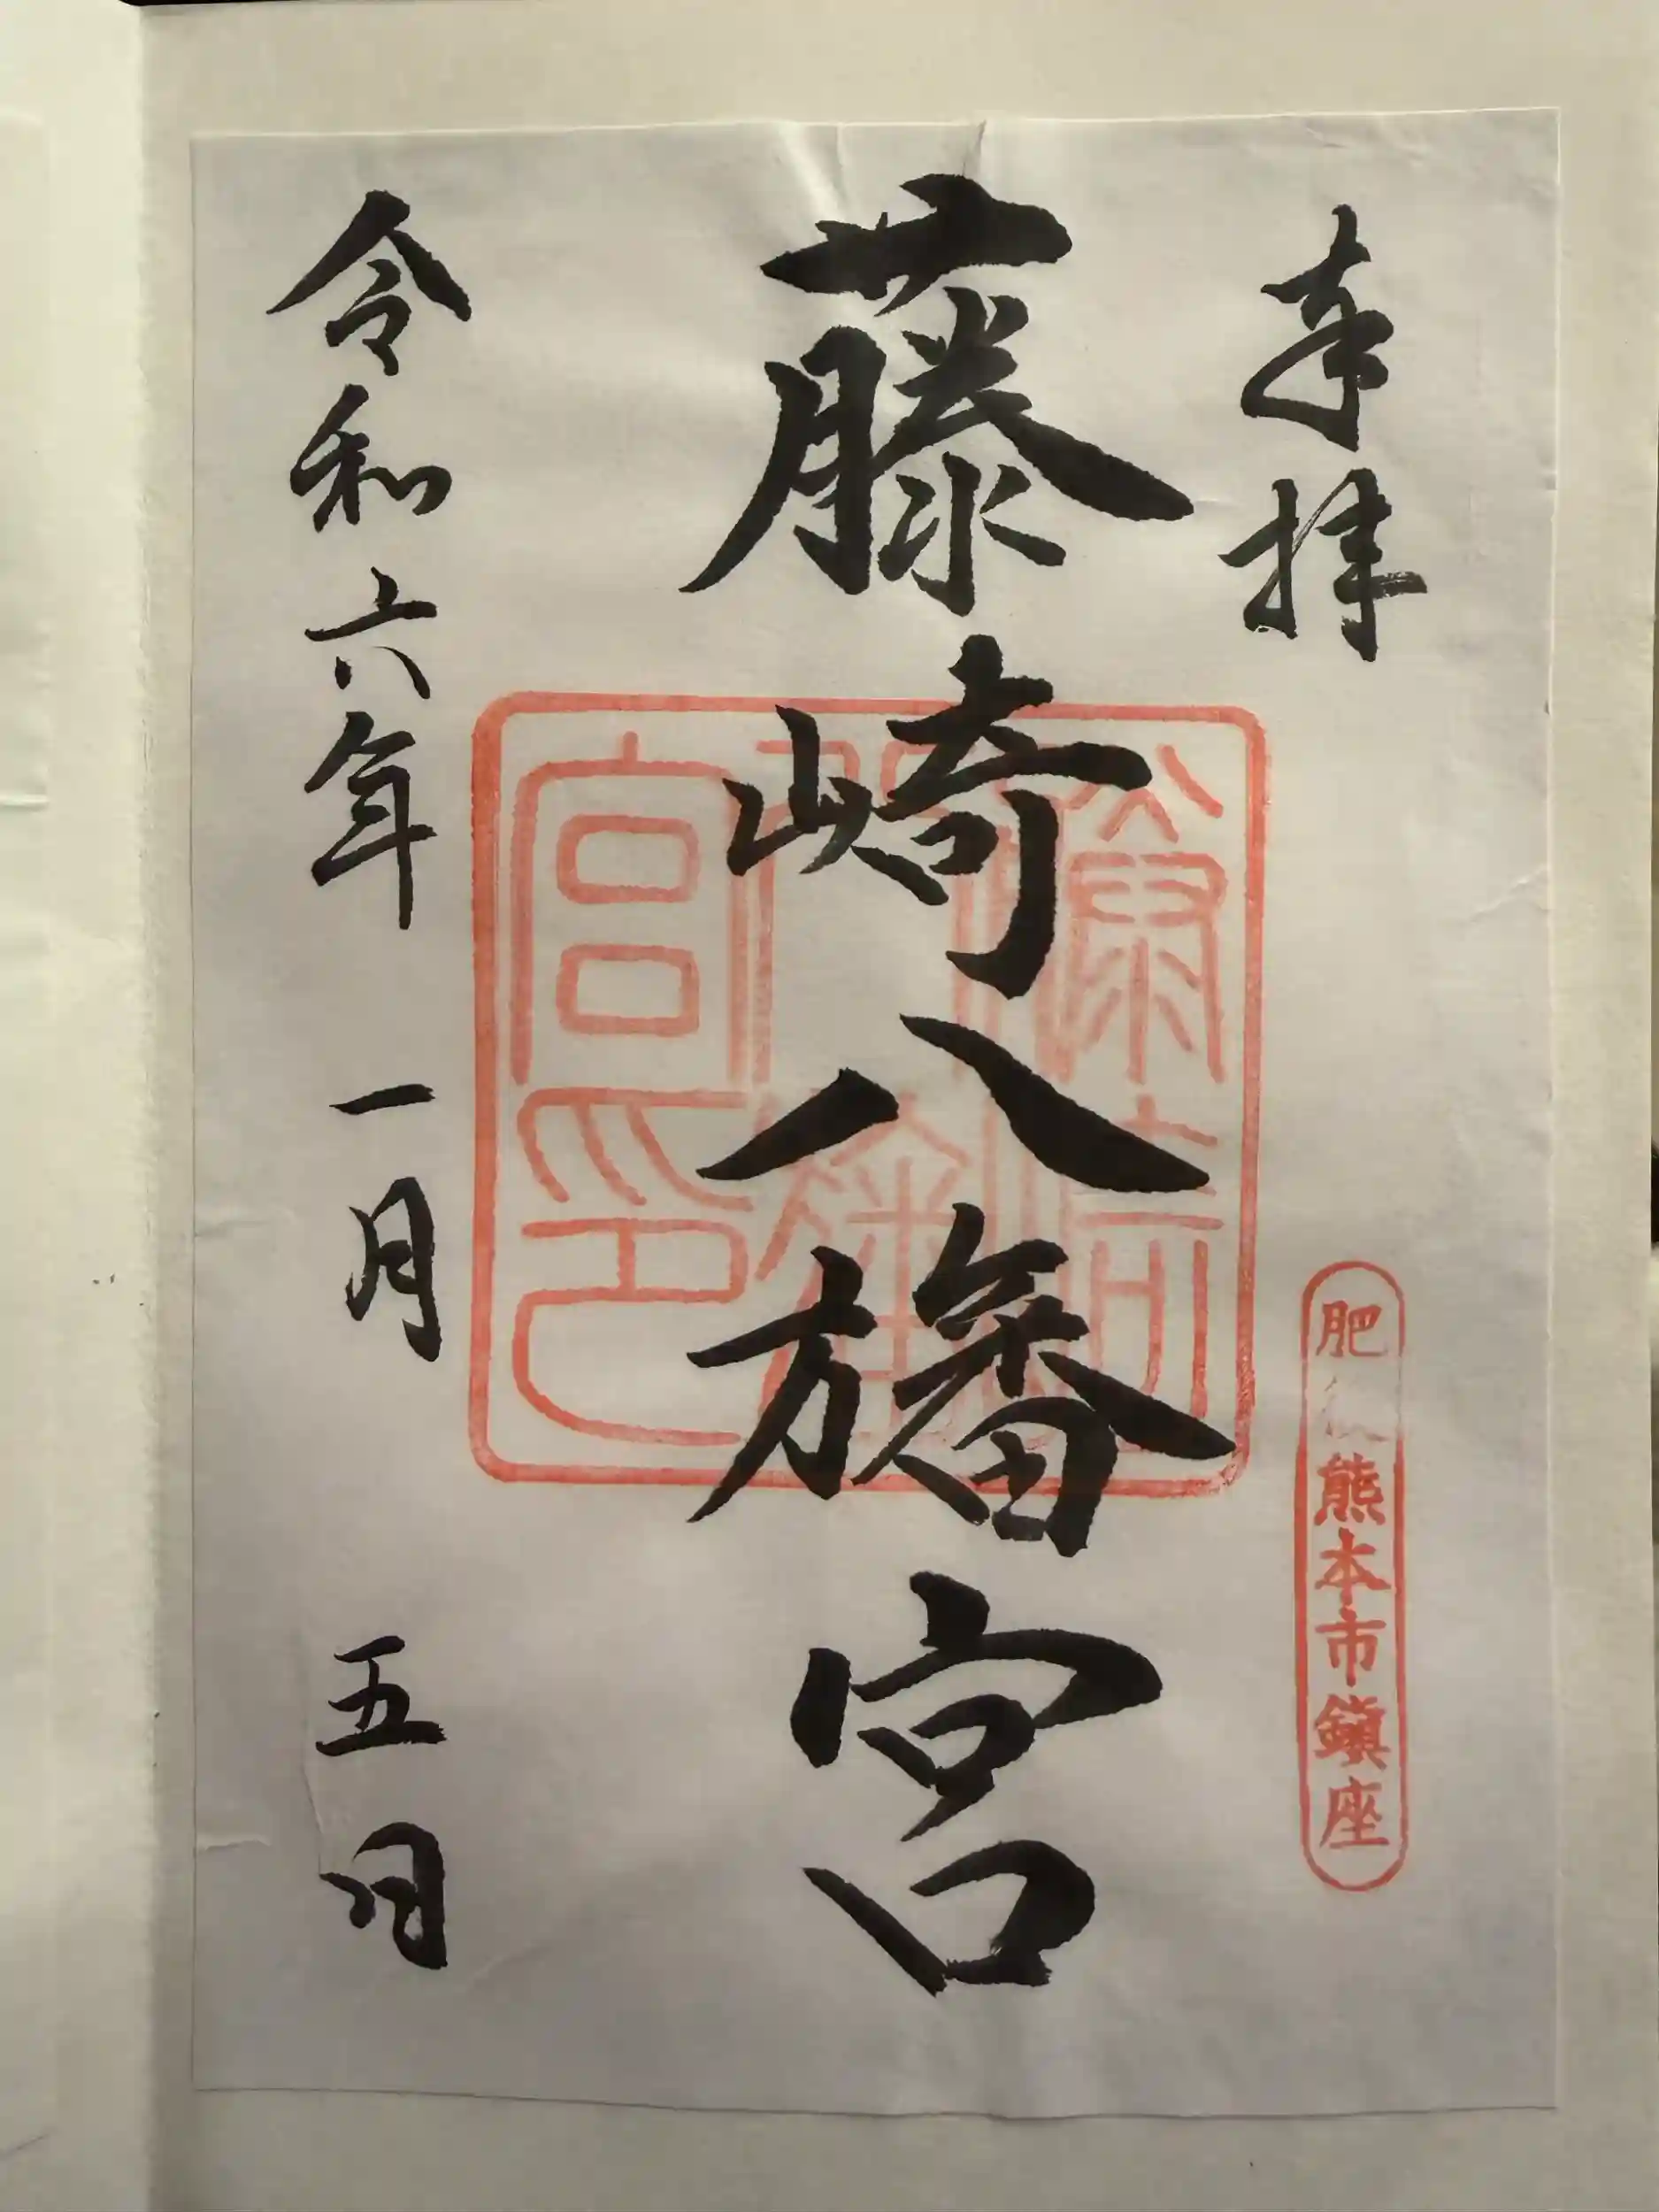 奉拝
肥後熊本市鎮座
藤崎八旛宮
令和六年一月五日